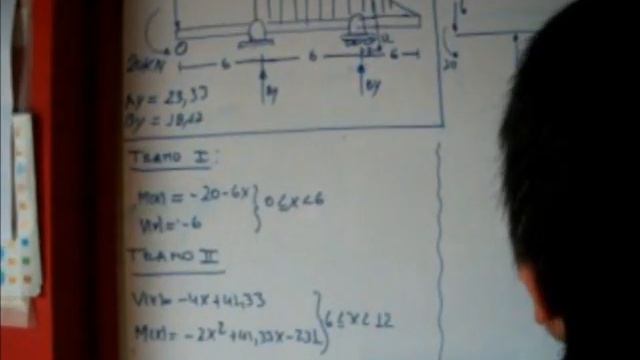 O
20KN
6 6 6
By By
Ay = 23,33
By = 18,67
TRAMO I:
M(x) = -20-6x } 0 ≤ x < 6
V(x) = -6
TRAMO II
V(x) = -4x+41,33
M(x) = -2x²+41,33x-232 } 6 ≤ x < 12
20